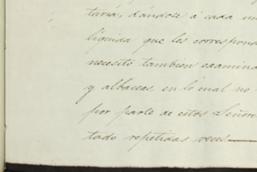 taria, dándose á cada un
líquida que les correspond
necesito tambien examina
y albaceas, en lo cual no
por parte de estos Señor
tado repetidas veces